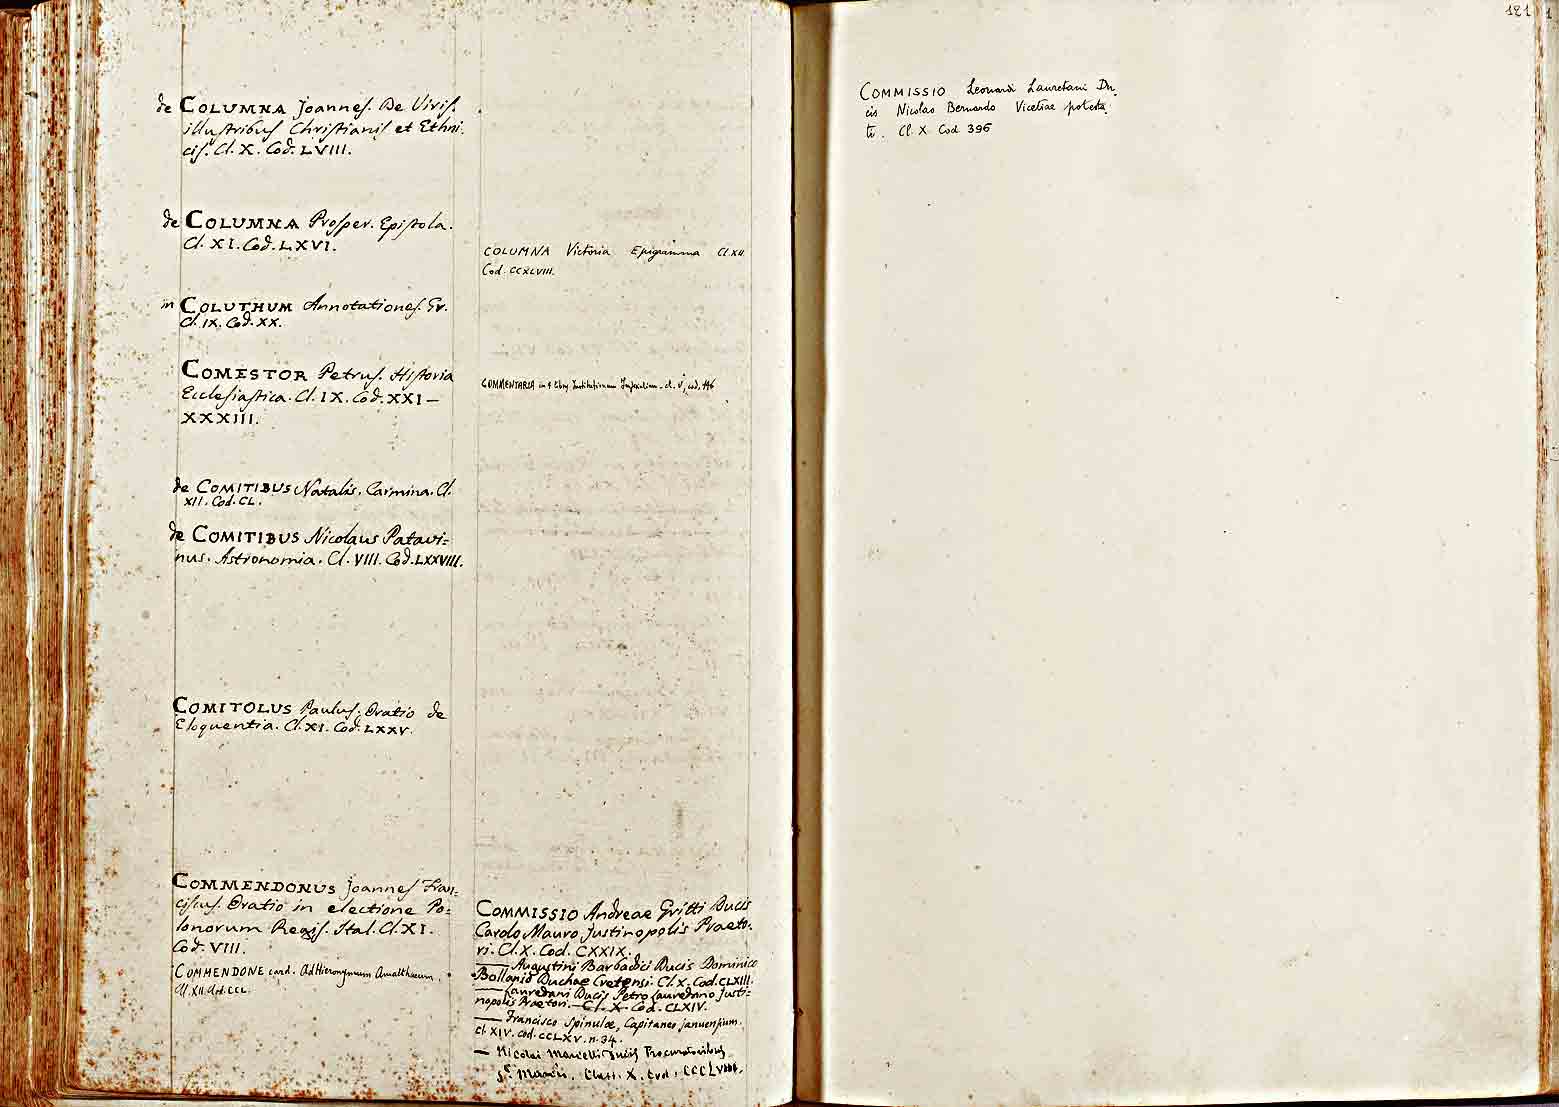 de COLUMNA Joannes. De Viris
illustribus Christianis et Ethni
cis. Cl. X. Cod. LVIII.
de COLUMNA Prosper. Epistola.
Cl. XI. Cod. LXVI.
in COLUTHUM Annotationes. Gr.
Cl. IX. Cod. XX.
COMESTOR Petrus. Historia
Ecclesiastica. Cl. IX. Cod. XXI—
XXXIII.
de COMITIBUS Natalis. Carmina. Cl.
XII. Cod. CL.
de COMITIBUS Nicolaus Patavi=
nus. Astronomia. Cl. VIII. Cod. LXXVIII.
COMITOLUS Paulus. Oratio de
Eloquentia. Cl. XI. Cod. LXXV.
COMMENDONUS Joannes Fran=
ciscus. Oratio in electione Po=
lonorum Regis. Ital. Cl. XI.
Cod. VIII.
COMMENDONE card. Ad Hieronymum Amaltheum.
Cl. XII. Cod. CCL.
COLUMNA Victoria Epigramma Cl. XII
Cod. CCXLVIII.
COMMENTARIA in 4 libros Institutionum Imperialium. cl. V, cod. 116
COMMISSIO Andreae Gritti Ducis
Carolo Mauro Justinopolis Praeto=
ri. Cl. X. Cod. CXXIX.
— Augustini Barbadici Ducis Dominico
Bollanio Duchae Cretensi. Cl. X. Cod. CLXIII.
— Lauredani Ducis Petro Lauredano Justi=
nopolis Praetori. — Cl. X. Cod. CLXIV.
— Francisco Spinulae, Capitaneo januensium.
Cl. XIV. Cod. CCLXV. n. 34.
— Nicolai Marcelli Ducis Procuratoribus
S. Marci. Class. X. Cod. CCCLVIII.
121
COMMISSIO Leonardi Lauretani Du
cis Nicolao Bernardo Vicetiae potesta
ti. Cl. X Cod 396